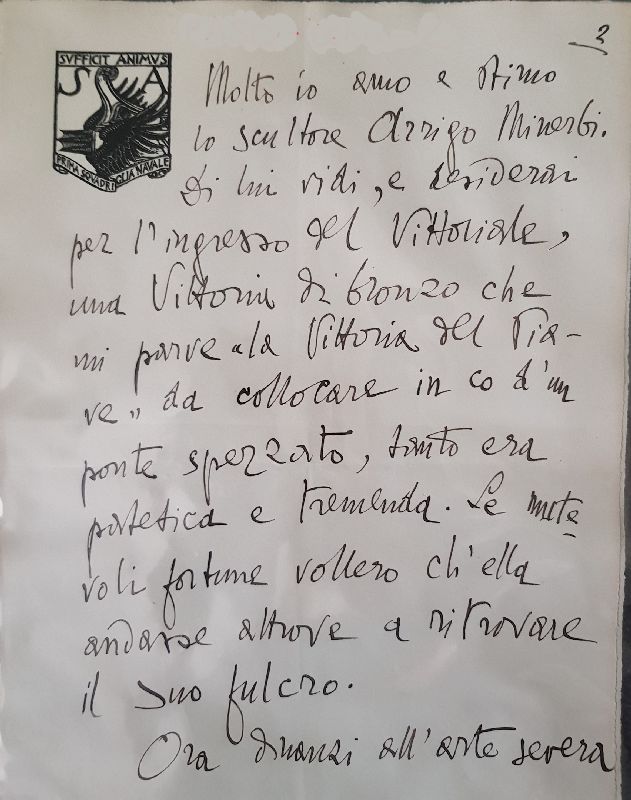 2
SVFFICIT ANIMVS
S A
PRIMA SQVADRIGLIA NAVALE
Molto io amo e stimo
lo scultore Arrigo Minerbi.
Di lui vidi, e desiderai
per l'ingresso del Vittoriale,
una Vittoria di bronzo che
mi parve «la Vittoria del Pia-
ve» da collocare in co d'un
ponte spezzato, tanto era
patetica e tremenda. Le mute
voli fortune vollero ch'ella
andasse altrove a ritrovare
il suo fulcro.
Ora dinanzi all'arte severa